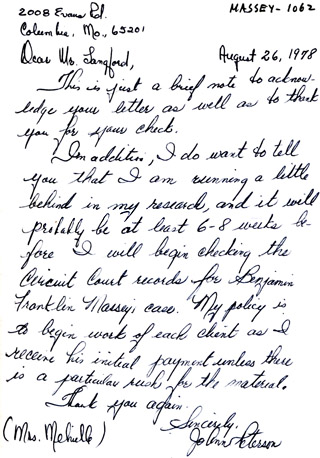 2008 Evans Rd.
MASSEY-1062
Columbia, Mo., 65201
Dear Mr. Langford,
August 26, 1978
This is just a brief note to acknow-
ledge your letter as well as to thank
you for your check.
In addition, I do want to tell
you that I am running a little
behind in my research, and it will
probably be at least 6-8 weeks be-
fore I will begin checking the
Circuit Court records for Benjamin
Franklin Massey, case. My policy is
to begin work of each client as I
receive his initial payment unless there
is a particular rush for the material.
Thank you again.
Sincerely,
(Mrs. Melville)
JoAnn Peterson